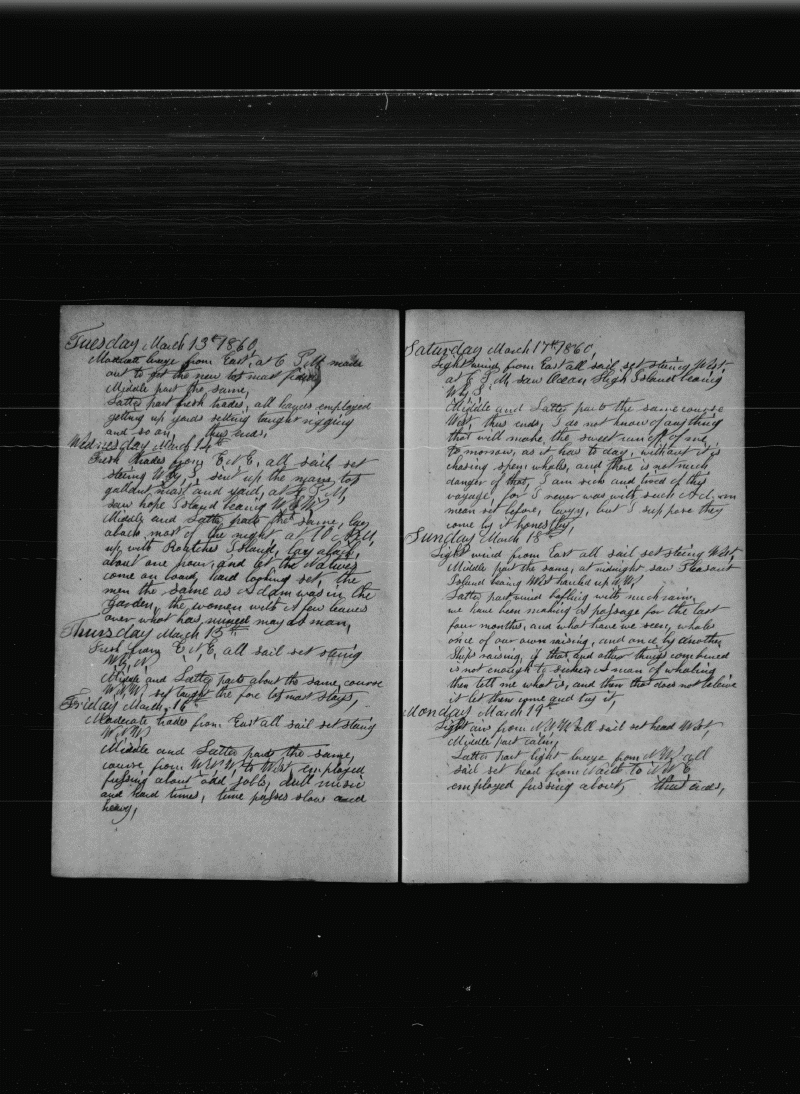 Tuesday March 13th 1860,
Moderate breeze from East, at 6 P,M made
out to get the new top mast fidded,
Middle part the same,
Latter part fresh trades, all hands employed
getting up yards setting taught rigging
and so on, thus ends,
Wednesday March 14th
Fresh trades from E N E, all sail set
steering W by S, sent up the main top
gallant mast and yard, at P, M,
saw hope Island bearing W S W
Middle and Latter parts the same, lay
aback most of the night, at 10 A,M,
up with Rotches Island, lay aback,
about one hour, and let the Natives
come on board, hard looking set, the
men the same as Adam was in the
Garden, the women with a few leaves
over what has may as man,
Thursday March 15th
Fresh from E N E, all sail set steering
W by N
Middle and Latter parts about the same, course
W N W, set taught the fore top mast stays,
Friday March, 16th
Moderate trades from East all sail set steering
W N W
Middle and Latter parts the same,
course from W N W, to West, employed
fussing about odd jobbs, dull music
and hard times, time passes slow and
heavy,
Saturday March 17th 1860,
Light winds from East all sail set steering West,
at P,M, saw Ocean High Island bearing
W by S
Middle and Latter parts the same course
West, thus ends, I do not know of anything
that will make, the sweat run off of me,
to morrow, as it has to day, without it is
chasing sperm whales, and there is not much
danger of that, I am sick and tired of this
voyage, for I never was with such A d,
mean set before, lazy, but I suppose they
come by it honestly,
Sunday March 18th
Light wind from East all sail set steering West,
Middle part the same, at midnight saw Pleasant
Island bearing West hauled up N W
Latter part wind bafling with much rain,
we have been making A passage for the last
four months, and what have we seen, whales
once of our own raising, and once by another
Ships raising, if that, and other things combined
is not enough to sicken A man of whaling
then tell me what is, and them that does not believe
it let them come and try it,
Monday March 19th
Light airs from N N W all sail set head West,
Middle part calm,
Latter part light breeze from N W all
sail set head from North to N N E
employed fussing about, thus ends,